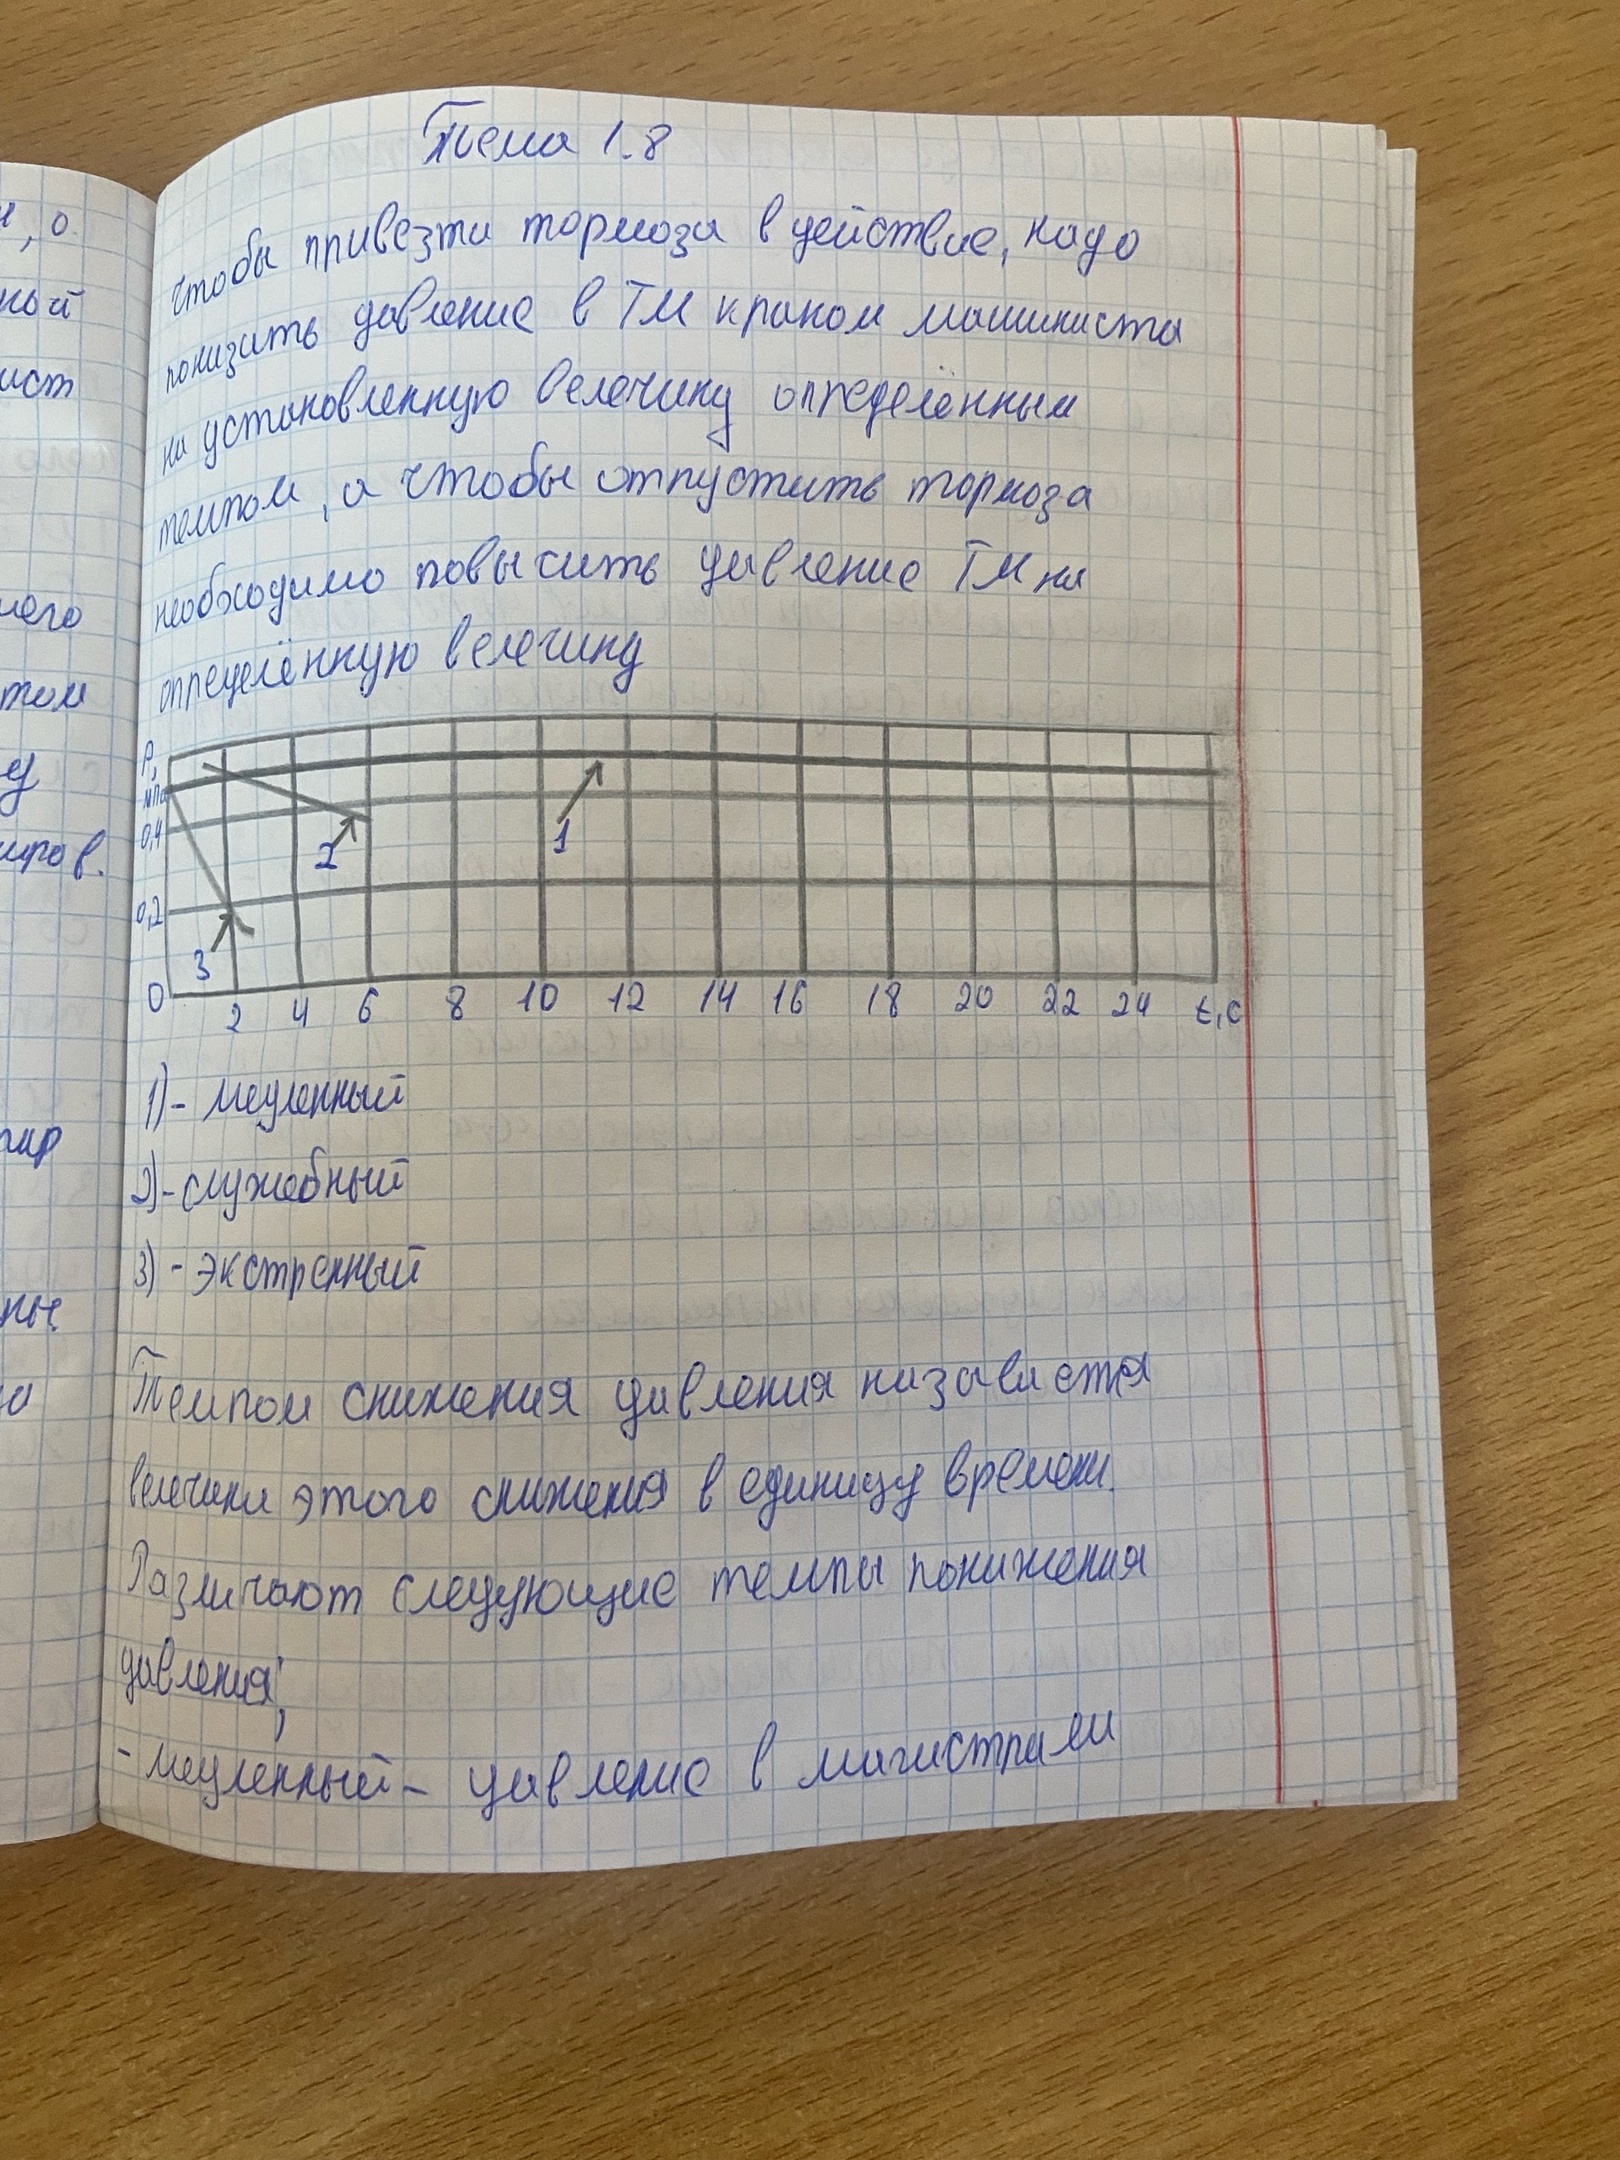 Тема 1.8
чтобы привезти тормоза в действие, надо
понизить давление в ТМ краном машиниста
на установленную велечину определённым
темпом, а чтобы отпустить тормоза
необходимо повысить давление ТМ на
определённую велечину
P,
МПа
0,4
0,2
0
1
2
3
2 4 6 8 10 12 14 16 18 20 22 24 t,c
1)- медленный
2)- служебный
3) - экстренный
Темпом снижения давления называется
велечина этого снижения в единицу времени.
Различают следующие темпы понижения
давления;
- медленный - давление в магистрали
и, о
ный
ист
него
том
у
иров.
гир
ны.